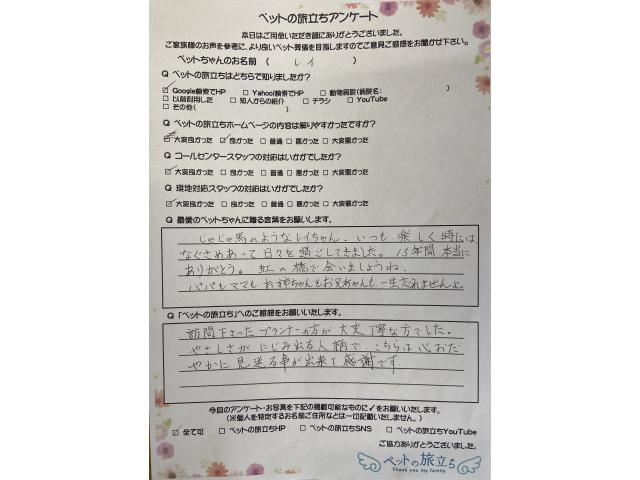 ペットの旅立ちアンケート
本日はご用命いただき誠にありがとうございました。
ご家族様のお声を参考に、より良いペット葬儀を目指しますのでご意見ご感想をお聞かせ下さい。
ペットちゃんのお名前 ( レイ )
Q ペットの旅立ちはどちらで知りましたか?
☑ Google検索でHP □ Yahoo!検索でHP □ 動物病院(病院名: )
□ 以前利用した □ 知人からの紹介 □ チラシ □ YouTube
□ その他( )
Q ペットの旅立ちホームページの内容は解りやすかったですか?
大変良かった ☑ 良かった □ 普通 □ 悪かった □ 大変悪かった
Q コールセンタースタッフの対応はいかがでしたか?
☑ 大変良かった □ 良かった □ 普通 □ 悪かった □ 大変悪かった
Q 環境対応スタッフの対応はいかがでしたか?
☑ 大変良かった □ 良かった □ 普通 □ 悪かった □ 大変悪かった
Q 最愛のペットちゃんに贈る言葉をお願いします。
じゃじゃ馬のようなレイちゃん、いつも楽しく時には
なぐさめあって日々を過ごしてきました。15年間本当に
ありがとう。虹の橋で会いましょうね。
パパもママもお姉ちゃんもお兄ちゃんも一生忘れませんよ。
Q 「ペットの旅立ち」へのご感想をお願いいたします。
訪問下さったプランナーの方が大変丁寧な方でした。
やさしさがにじみ出る人柄で、こちらは心おだ
やかに見送る事が出来て感謝です。
今回のアンケート・お写真を下記の掲載可能なものに✓をお願いします。
(※個人を特定するお名前ご住所などは一切記載いたしません。)
☑ 全て可 □ ペットの旅立ちHP □ ペットの旅立ちSNS □ ペットの旅立ちYouTube
ご協力ありがとうございました。
ペットの旅立ち
Thank you my family